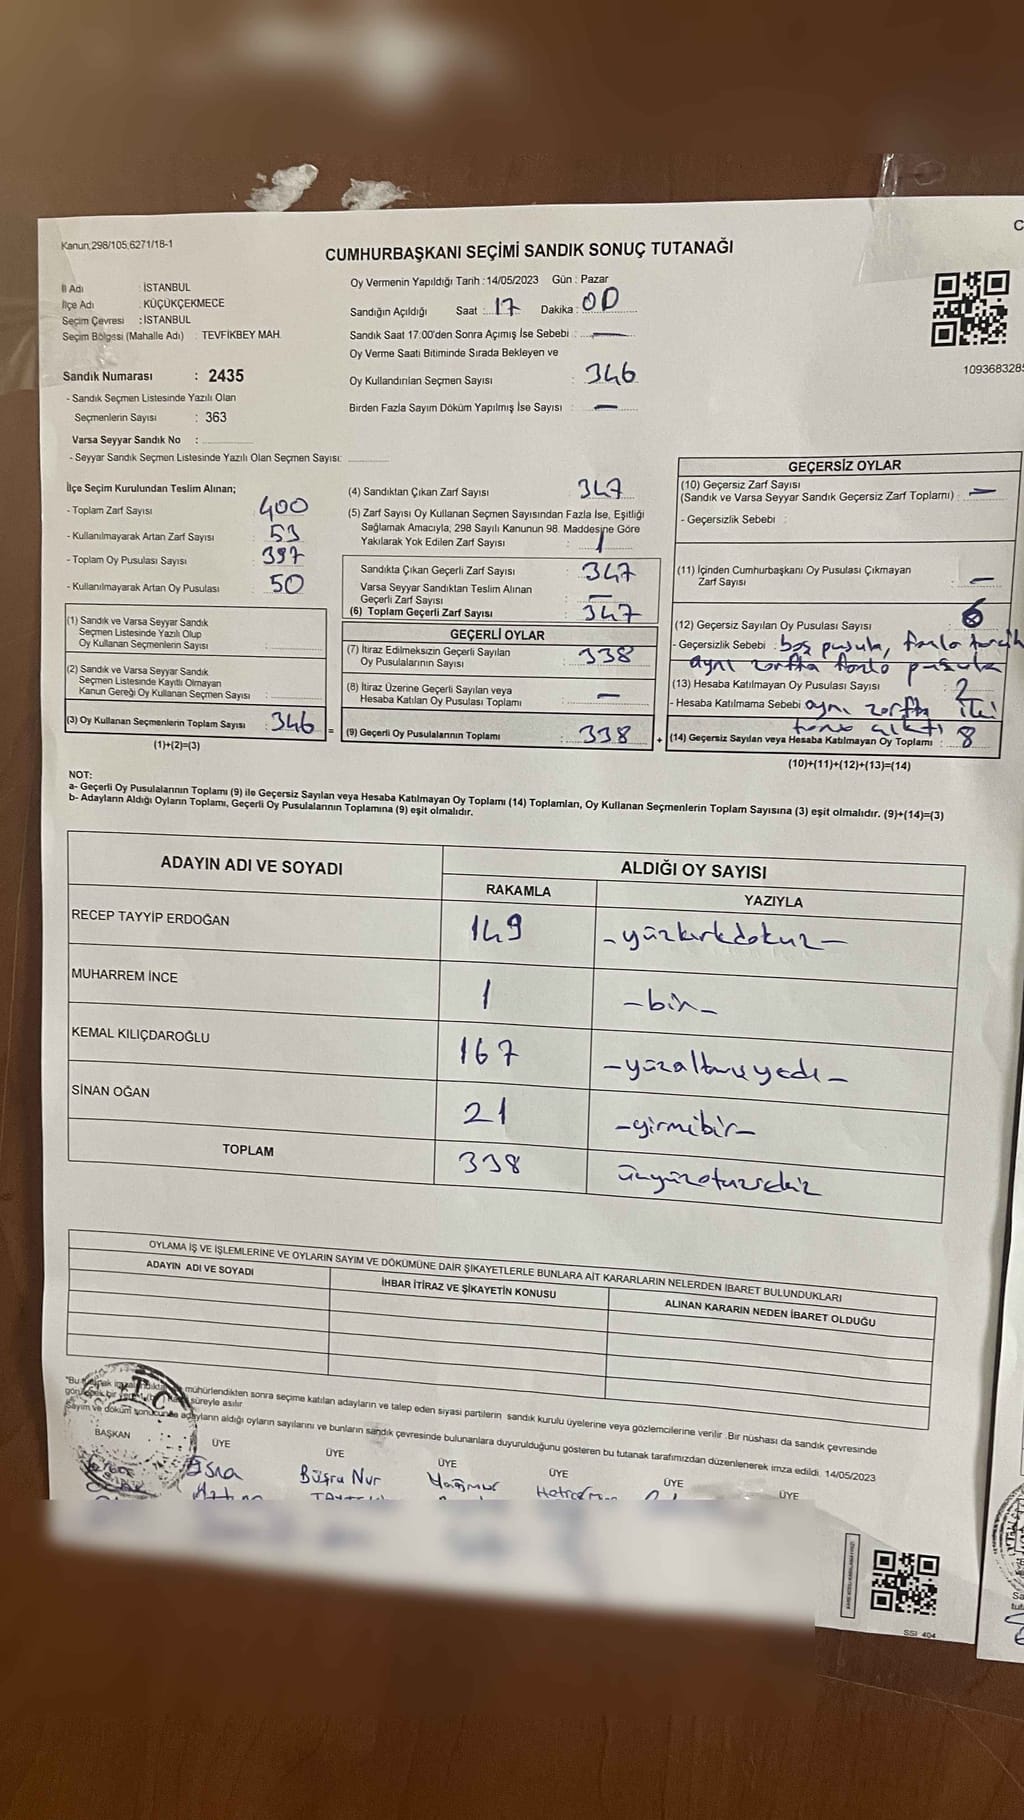 Kanun,298/105,6271/18-1
CUMHURBAŞKANI SEÇİMİ SANDIK SONUÇ TUTANAĞI
İl Adı : İSTANBUL
İlçe Adı : KÜÇÜKÇEKMECE
Seçim Çevresi : İSTANBUL
Seçim Bölgesi (Mahalle Adı) : TEVFİKBEY MAH.
Sandık Numarası : 2435
- Sandık Seçmen Listesinde Yazılı Olan
Seçmenlerin Sayısı : 363
Varsa Seyyar Sandık No :
- Seyyar Sandık Seçmen Listesinde Yazılı Olan Seçmen Sayısı:
Oy Vermenin Yapıldığı Tarih : 14/05/2023 Gün : Pazar
Sandığın Açıldığı Saat : 17 Dakika : 00
Sandık Saat 17:00'den Sonra Açımış İse Sebebi : —
Oy Verme Saati Bitiminde Sırada Bekleyen ve
Oy Kullandırılan Seçmen Sayısı : 346
Birden Fazla Sayım Döküm Yapılmış İse Sayısı : —
109368328
İlçe Seçim Kurulundan Teslim Alınan;
- Toplam Zarf Sayısı 400
- Kullanılmayarak Artan Zarf Sayısı 53
- Toplam Oy Pusulası Sayısı 397
- Kullanılmayarak Artan Oy Pusulası 50
(1) Sandık ve Varsa Seyyar Sandık
Seçmen Listesinde Yazılı Olup
Oy Kullanan Seçmenlerin Sayısı :
(2) Sandık ve Varsa Seyyar Sandık
Seçmen Listesinde Kayıtlı Olmayan
Kanun Gereği Oy Kullanan Seçmen Sayısı :
(3) Oy Kullanan Seçmenlerin Toplam Sayısı : 346
(1)+(2)=(3)
(4) Sandıktan Çıkan Zarf Sayısı : 347
(5) Zarf Sayısı Oy Kullanan Seçmen Sayısından Fazla İse, Eşitliği
Sağlamak Amacıyla; 298 Sayılı Kanunun 98. Maddesine Göre
Yakılarak Yok Edilen Zarf Sayısı : 1
Sandıkta Çıkan Geçerli Zarf Sayısı : 347
Varsa Seyyar Sandıktan Teslim Alınan
Geçerli Zarf Sayısı : —
(6) Toplam Geçerli Zarf Sayısı : 347
GEÇERLİ OYLAR
(7) İtiraz Edilmeksizin Geçerli Sayılan
Oy Pusulalarının Sayısı : 338
(8) İtiraz Üzerine Geçerli Sayılan veya
Hesaba Katılan Oy Pusulası Toplamı : —
= (9) Geçerli Oy Pusulalarının Toplamı : 338
GEÇERSİZ OYLAR
(10) Geçersiz Zarf Sayısı
(Sandık ve Varsa Seyyar Sandık Geçersiz Zarf Toplamı) : —
- Geçersizlik Sebebi :
(11) İçinden Cumhurbaşkanı Oy Pusulası Çıkmayan
Zarf Sayısı : —
(12) Geçersiz Sayılan Oy Pusulası Sayısı : 6
- Geçersizlik Sebebi : boş pusula, fazla tercih
aynı zarfta fazla pusula
(13) Hesaba Katılmayan Oy Pusulası Sayısı : 2
- Hesaba Katılmama Sebebi aynı zarfta iki
tane çıktı
+ (14) Geçersiz Sayılan veya Hesaba Katılmayan Oy Toplamı : 8
(10)+(11)+(12)+(13)=(14)
NOT:
a- Geçerli Oy Pusulalarının Toplamı (9) ile Geçersiz Sayılan veya Hesaba Katılmayan Oy Toplamı (14) Toplamları, Oy Kullanan Seçmenlerin Toplam Sayısına (3) eşit olmalıdır. (9)+(14)=(3)
b- Adayların Aldığı Oyların Toplamı, Geçerli Oy Pusulalarının Toplamına (9) eşit olmalıdır.
ADAYIN ADI VE SOYADI ALDIĞI OY SAYISI
RAKAMLA YAZIYLA
RECEP TAYYİP ERDOĞAN 149 -yüzkırkdokuz-
MUHARREM İNCE 1 -bir-
KEMAL KILIÇDAROĞLU 167 -yüzaltmışyedi-
SİNAN OĞAN 21 -yirmibir-
TOPLAM 338 üçyüzotuzsekiz
OYLAMA İŞ VE İŞLEMLERİNE VE OYLARIN SAYIM VE DÖKÜMÜNE DAİR ŞİKAYETLERLE BUNLARA AİT KARARLARIN NELERDEN İBARET BULUNDUKLARI
ADAYIN ADI VE SOYADI İHBAR İTİRAZ VE ŞİKAYETİN KONUSU ALINAN KARARIN NEDEN İBARET OLDUĞU
"Bu mühürlendikten sonra seçime katılan adayların ve talep eden siyasi partilerin sandık kurulu üyelerine veya gözlemcilerine verilir. Bir nüshası da sandık çevresinde
süreyle asılır
Sayım ve döküm sonucunda adayların aldığı oyların sayılarını ve bunların sandık çevresinde bulunanlara duyurulduğunu gösteren bu tutanak tarafımızdan düzenlenerek imza edildi. 14/05/2023
T.C.
BAŞKAN ÜYE ÜYE ÜYE ÜYE ÜYE ÜYE
Esra Büşra Nur Yağmur
SSI 404